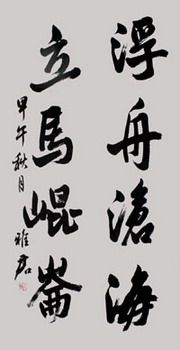 浮舟滄海
立馬崐崙
甲午秋月 雅君